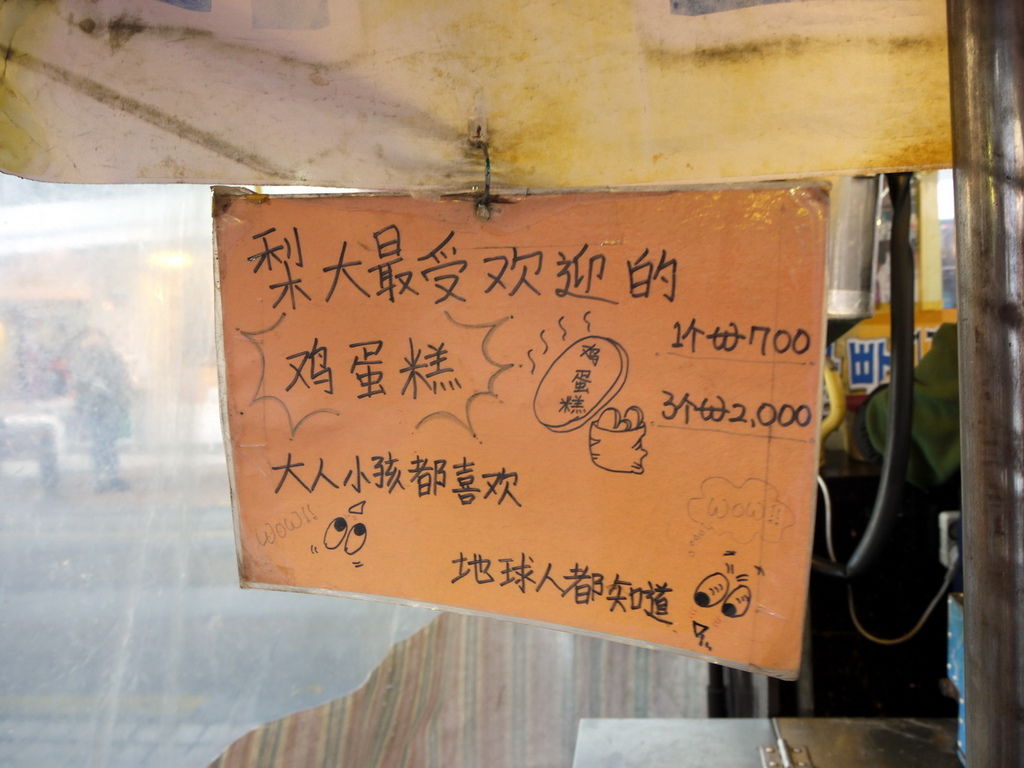 梨大最受欢迎的
鸡蛋糕
鸡蛋糕
1个 700
3个 2,000
大人小孩都喜欢
WOW!!
WOW!!
地球人都知道